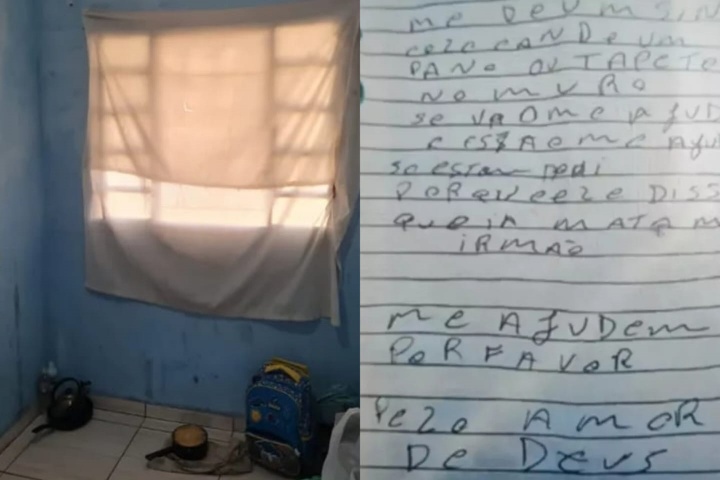 ME DEUM SIN
COLOCANDEUM
PANO OU TAPETE
NO MURO
SE VAOME AJUD
E ESSAEME AJU
SO ESTAM PEDI
PORQUE ELE DISS
QUE IA MATA M
IRMÃO
ME AJUDEM
POR FAVOR
PELO AMOR
DE DEUS